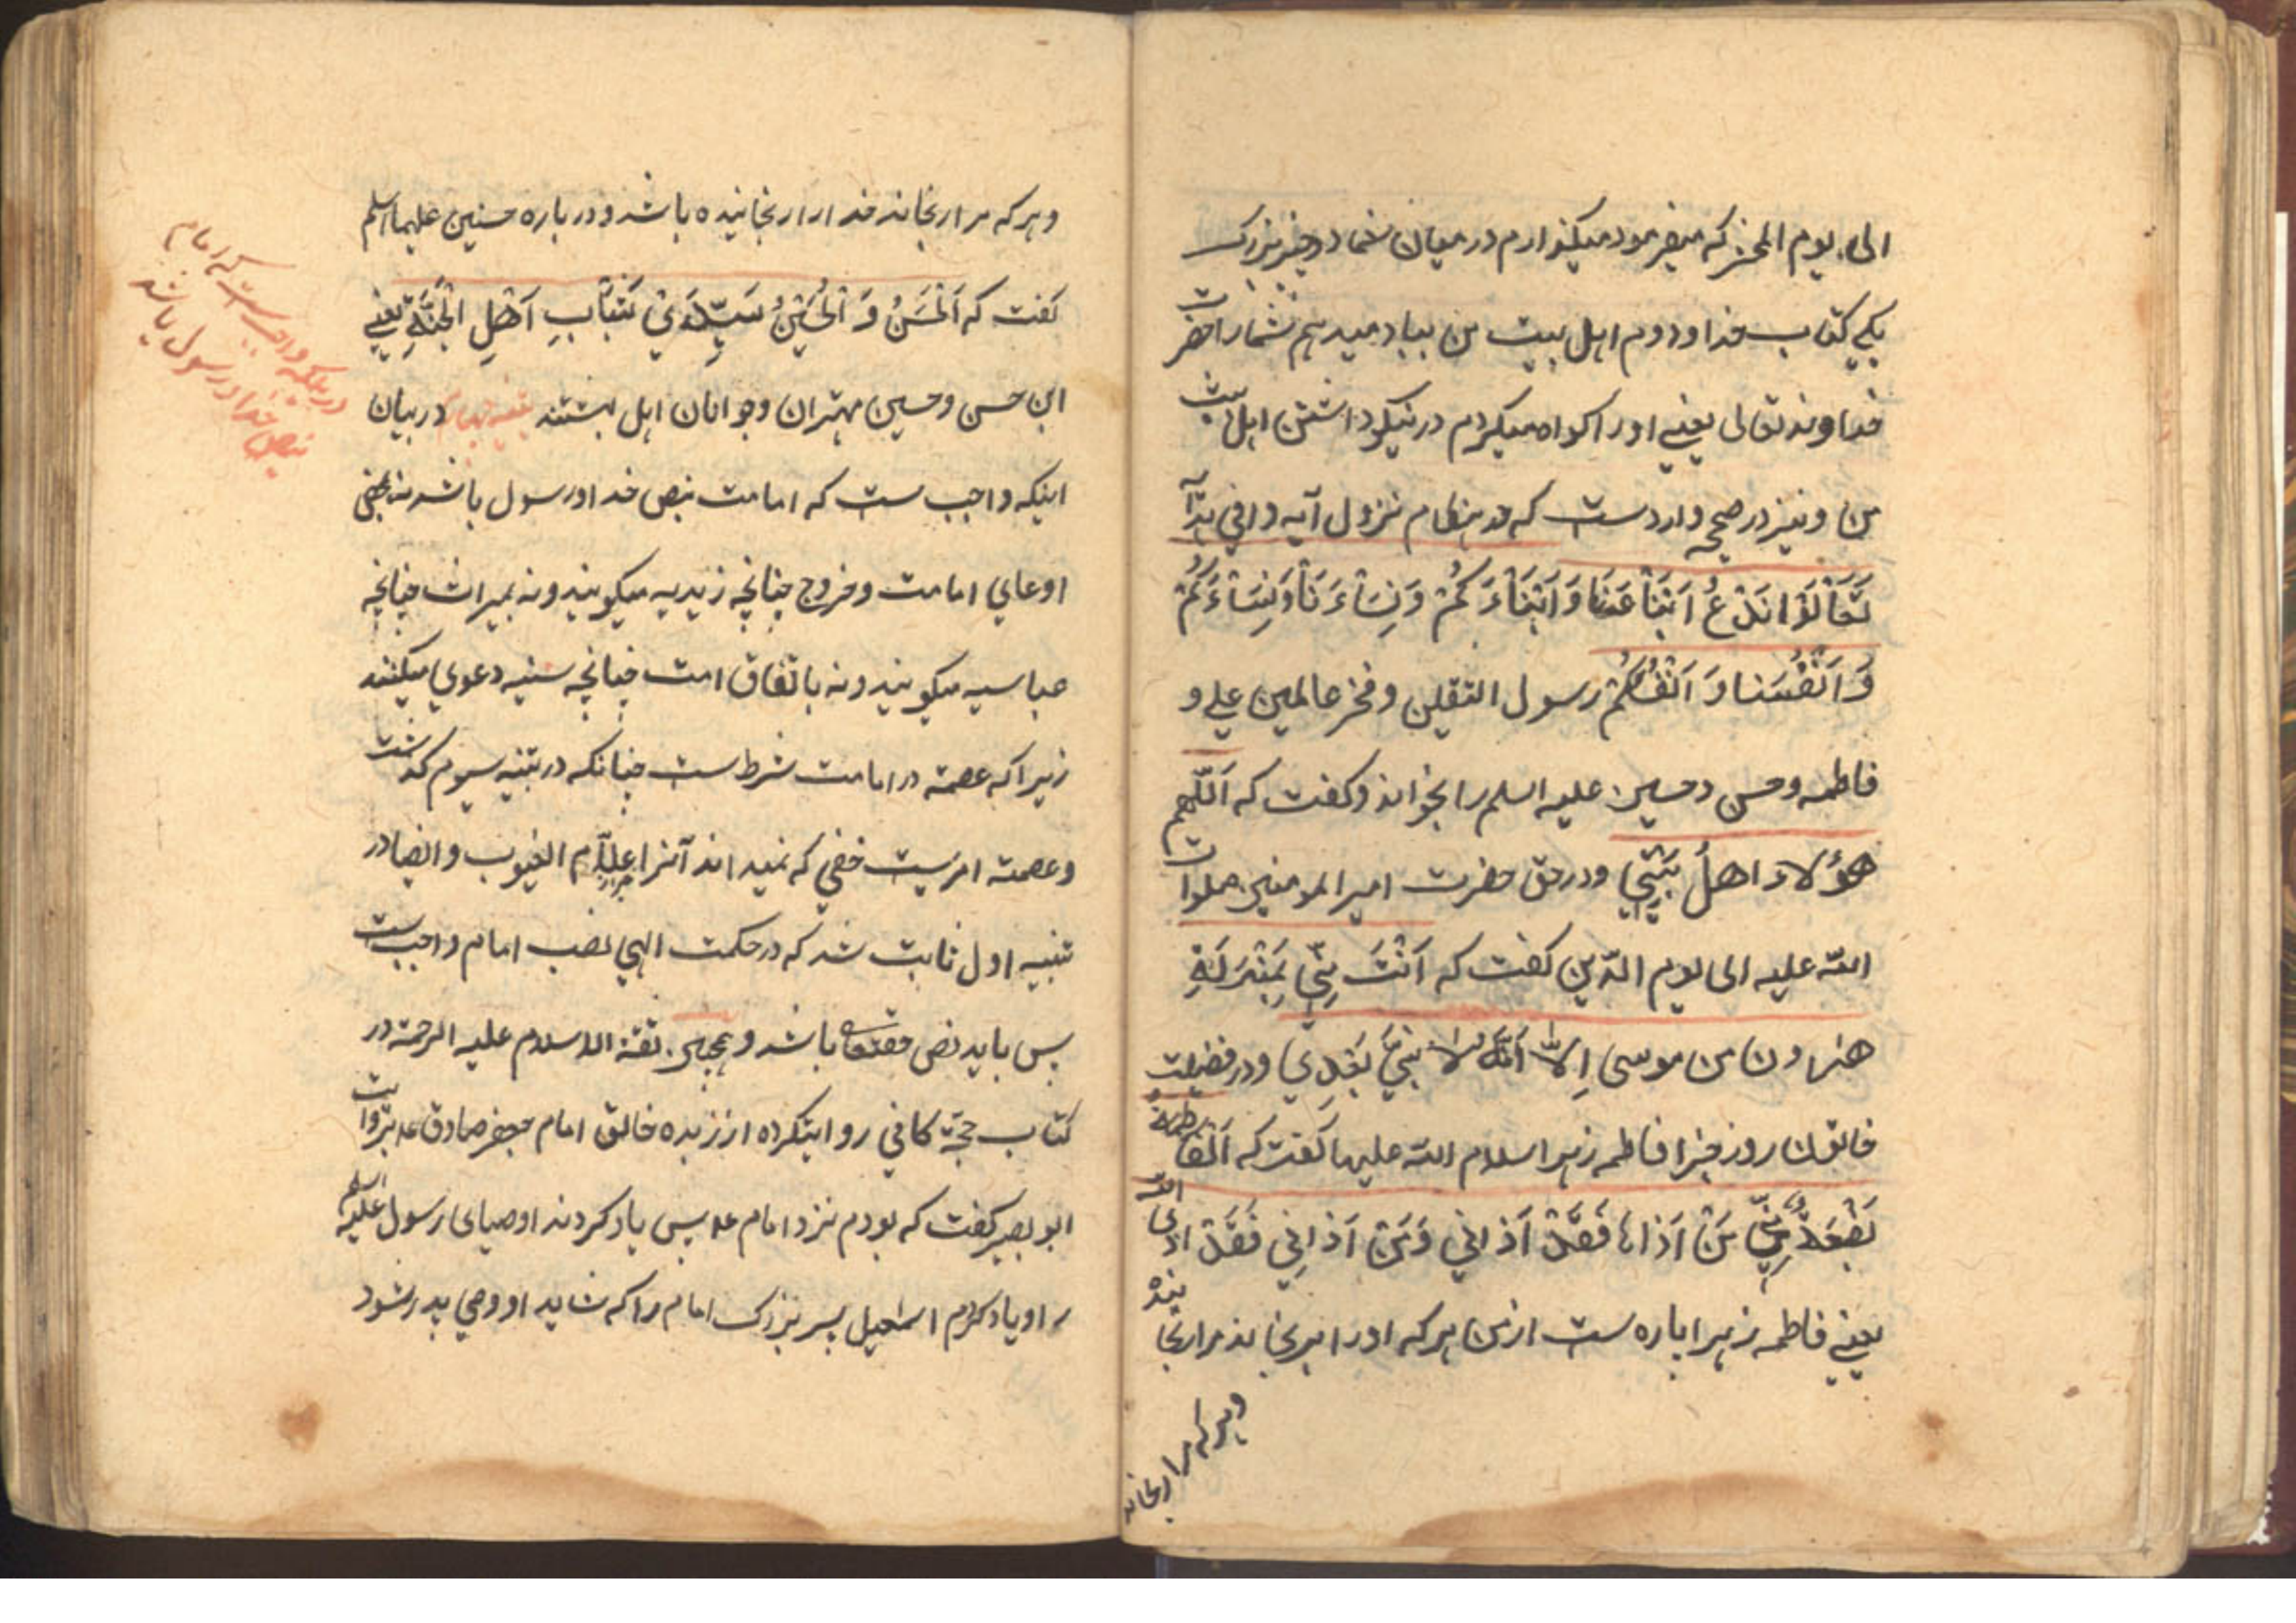 الی یوم المحشر که میفرمود میکذارم در میان شما دو چیز بزرک
یکی کتاب خدا و دوم اهل بیت من بیاد میدهم شما را حضرت
خداوند تعالی یعنی او را کواه میکردم در نیکو داشتن اهل بیت
من و نیز در صحیح وارد ست که هنکام نزول آیه وافی هدایه
تَعَالَوْا نَدْعُ اَبْنَاءَنَا وَ اَبْنَاءَكُمْ وَ نِسَاءَنَا وَ نِسَاءَكُمْ
وَ اَنْفُسَنَا وَ اَنْفُسَكُمْ رسول الثقلین و فخر عالمین علی و
فاطمه و حسن و حسین علیه السلم را بخواند و کفت که اَللّٰهم
هؤلاء اهلُ بَیْتِي و در حق حضرت امیر المومنین صلوات
الله علیه الی یوم الدّین کفت که اَنْتَ مِنِّي بِمَنْزِلَةِ
هرون من موسی اِلّا اَنَّهُ لا نَبِيَّ بَعْدِي و در فضیلت
خاتون روز جزا فاطمه زهرا سلام الله علیها کفت که اَلْفَاطِمَةُ
بَضْعَةٌ مِنِّي مَنْ اَذَاهَا فَقَدْ اَذَانِي وَ مَنْ اَذَانِي فَقَدْ اذی الله
یعنی فاطمه زهرا پاره ست از من هر که او را برنجاند مرا رنجانیده
و هر که مرا رنجاند
و هر که مرا رنجاند خدا را رنجانیده باشد و در باره حسنین علیهما السلم
کفت که اَلْحَسَنُ وَ الْحُسَیْنُ سَیِّدَيْ شَبَابِ اَهْلِ الْجَنَّةِ یعنی
این حسن و حسین مهتران و جوانان اهل بهشتند تنبیه چهارم در بیان
اینکه واجب ست که امامت بنص خدا و رسول باشد نه بمحض
ادعای امامت و خروج چنانچه زیدیه میکویند و نه بمیراث چنانچه
عباسیه میکویند و نه باتفاق امت چنانچه سنیه دعوی میکنند
زیرا که عصمة در امامت شرط ست چنانکه در تنبیه سیوم کذشت
و عصمة امریست خفی که نمیداند آنرا علّام الغیوب و ایضا در
تنبیه اول ثابت شد که در حکمت الهی نصب امام واجب ست
پس باید نص باشد و ثقة الاسلام علیه الرحمة در
کتاب حجّة کافی روایتکرده از زبده خالق امام جعفر صادق ع بروایت
ابو بصیر کفت که بودم نزد امام ع پس یاد کردند اوصیای رسول علیه السلم
را و یاد کردم اسمعیل پسر بزرک امام را که شاید او وصی پدر شود
در بیان اینکه واجب ست که امام
بنص خدا و رسول باشد